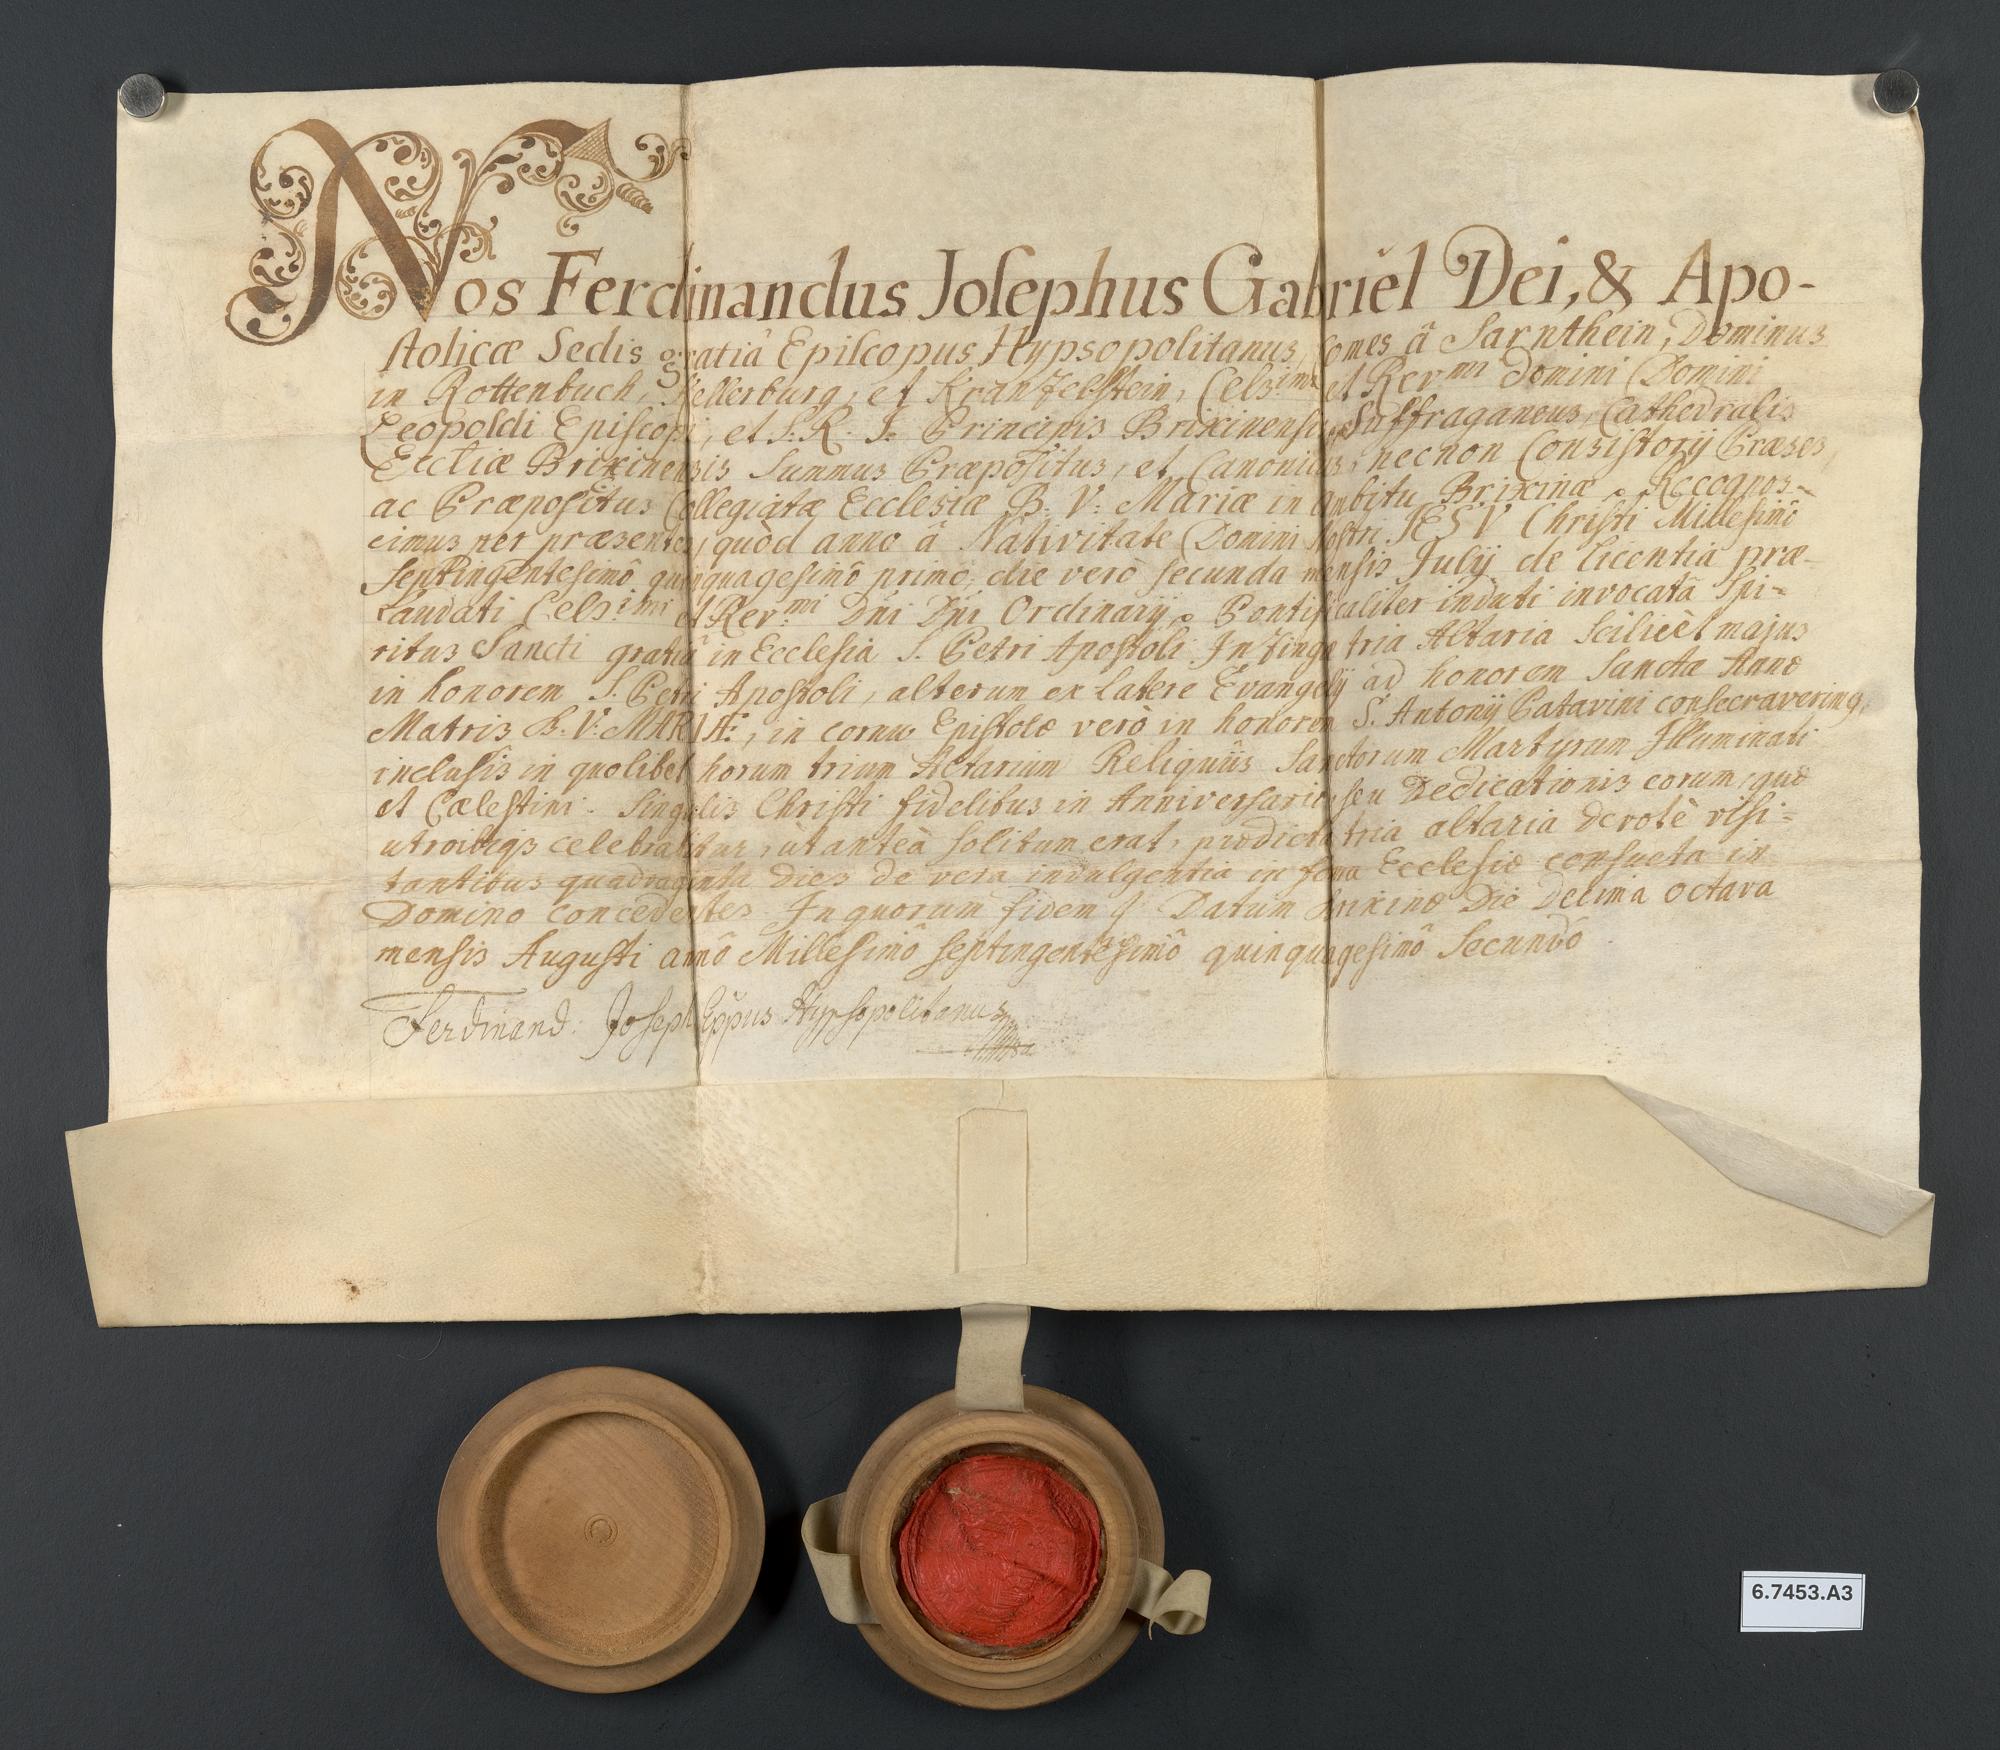 Nos Ferdinandus Josephus Gabriel Dei, & Apo-
stolicæ Sedis gratiâ Episcopus Hypsopolitanus, Comes â Sarnthein, Dominus
in Rottenbuch, Kellerburg, et Kranzelstein, Cels:imi et Rev:mi Domini Domini
Leopoldi Episcopi, et S: R: I: Principis Brixinensis Suffraganeus, Cathedralis
Eccliæ Brixinensis Summus Præpositus, et Canonicus, necnon Consistorij Præses,
ac Præpositus Collegiatæ Ecclesiæ B: V: Mariæ in Ambitu Brixinæ Recognos-
cimus per præsentes, quòd anno â Nativitate Domini Nostri JESV Christi Millesimô
septingentesimô quinquagesimô primô, die verò secunda mensis Julij de licentia præ-
laudati Cels:imi et Rev:mi Dñi Dñi Ordinarij Pontificaliter induti invocatâ Spi-
ritus Sancti gratiâ in Ecclesia S. Petri Apostoli In Zinga tria Altaria Scilicèt majus
in honorem S. Petri Apostoli, alterum ex latere Evangelij ad honorem Sanctæ Annæ
Matris B. V: MARIÆ, in cornu Epistolæ verò in honorem S. Antonij Patavini consecraverimus,
inclusis in quolibet horum trium Altarium Reliquiis Sanctorum Martyrum Illuminati
et Cælestini. Singulis Christi fidelibus in Anniversario, seu Dedicationis eorum, quæ
utrobiqs celebrabitur, ùt anteà solitum erat, prædicta tria altaria devotè visi-
tantibus quadraginta dies de vera indulgentia in forma Ecclesiæ consueta in
Domino concedentes. In quorum fidem Datum Brixinæ Die Decima octava
mensis Augusti annô Millesimô septingentesimô quinquagesimô Secundô
Ferdinand: Joseph Eppus Hypsopolitanus
6.7453.A3